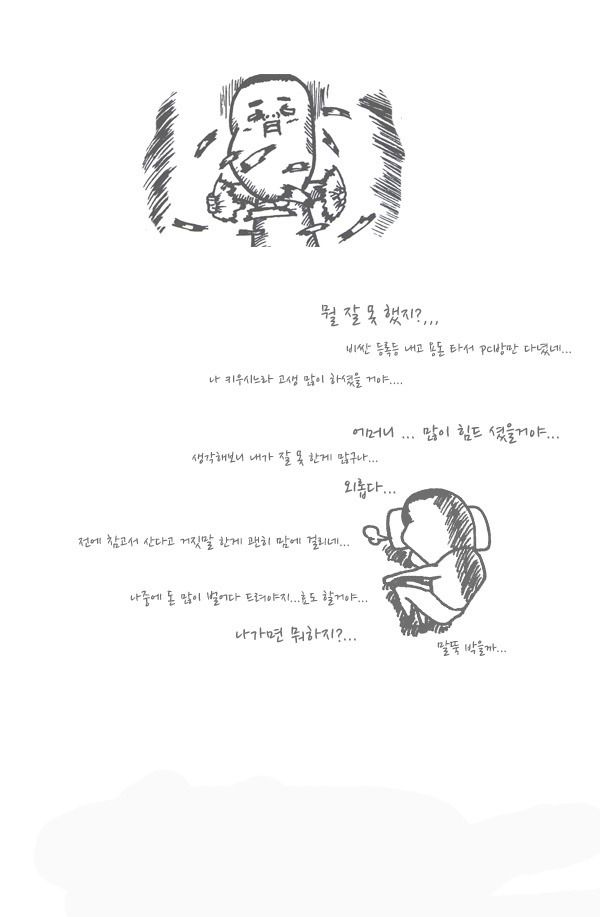 뭘 잘 못 했지?,,,
비싼 등록등 내고 용돈 타서 PC방만 다녔네...
나 키우시느라 고생 많이 하셨을 거야....
어머니 ... 많이 힘드 셨을거야...
생각해보니 내가 잘 못 한게 많구나...
외롭다...
전에 참고서 산다고 거짓말 한게 괜히 맘에 걸리네...
나중에 돈 많이 벌어다 드려야지...효도 할거야...
나가면 뭐하지?...
말뚝 박을까...